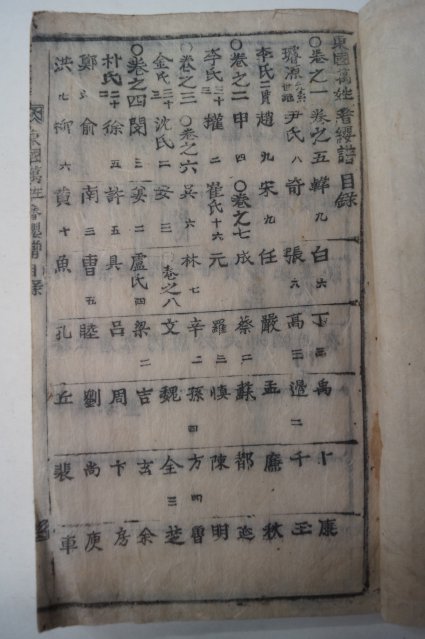 東國萬姓香譜目錄
○卷之一 卷之五 韓九 白六 丁三 禹 康
璿源 尹氏八 奇 張六 高三 千 王
李氏二貫 趙九 宋九 任 嚴 孟 廉 秋
○卷之二 申四 ○卷之七 成 蔡二 蘇 都
李氏三十 權二 崔氏十六 元 羅二 愼 陳 明
○卷之三 ○卷之六 吳六 林七 辛二 孫四 方四 魯
金氏三十 沈氏二 安三 ○卷之八 文 魏 全三
○卷之四 閔三 姜二 盧氏四 梁二 吉 玄 余
朴氏二十 徐五 許五 具 呂 周 卞 房
鄭 兪 南三 曺五 睦 劉 尚 庾
洪七 柳六 黃十 魚 孔 丘 裴 車
東國萬姓香譜目錄